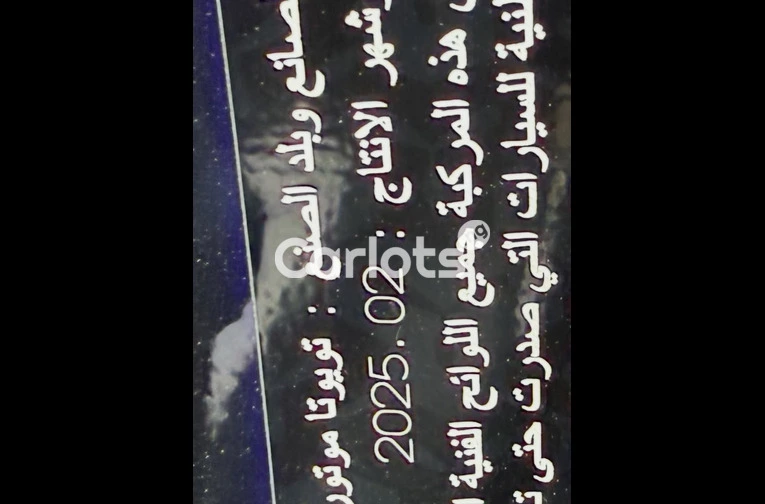 صانع وبلد الصنع : تويوتا موتور
وشهر الانتاج : 2025.02
هذه المركبة جميع اللوائح الفنية
للسيارات التي صدرت حتى
Carlots